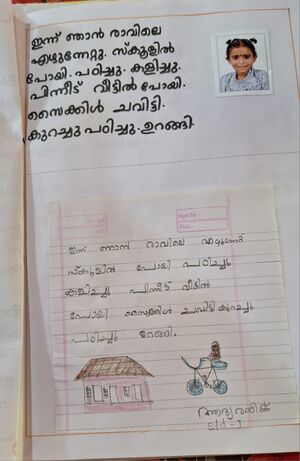 ഇന്ന് ഞാൻ രാവിലെ
എഴുന്നേറ്റു. സ്കൂളിൽ
പോയി. പഠിച്ചു. കളിച്ചു.
പിന്നീട് വീട്ടിൽ പോയി.
സൈക്കിൾ ചവിട്ടി.
കുറച്ചു പഠിച്ചു. ഉറങ്ങി.
Page No :
Date :
ഇന്ന് ഞാൻ രാവിലെ
സ്കൂളിൽ പോയി പഠിച്ചു
കളിച്ചു പിന്നീട് വീട്ടിൽ
പോയി സൈക്കിൾ ചവിട്ടി കുറച്ചു
പഠിച്ചു ഉറങ്ങി.